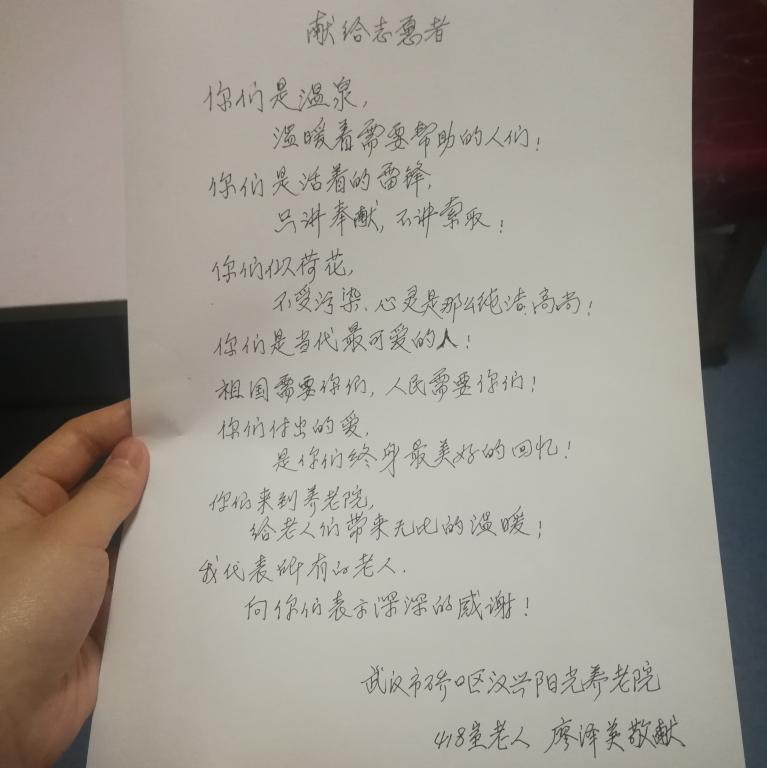 献给志愿者
你们是温泉,
温暖着需要帮助的人们!
你们是活着的雷锋,
只讲奉献,不讲索取!
你们似荷花,
不受污染、心灵是那么纯洁、高尚!
你们是当代最可爱的人!
祖国需要你们,人民需要你们!
你们付出的爱,
是你们终身最美好的回忆!
你们来到养老院,
给老人们带来无比的温暖!
我代表所有的老人.
向你们表示深深的感谢!
武汉市硚口区汉兴阳光养老院
418室老人 廖泽美敬献